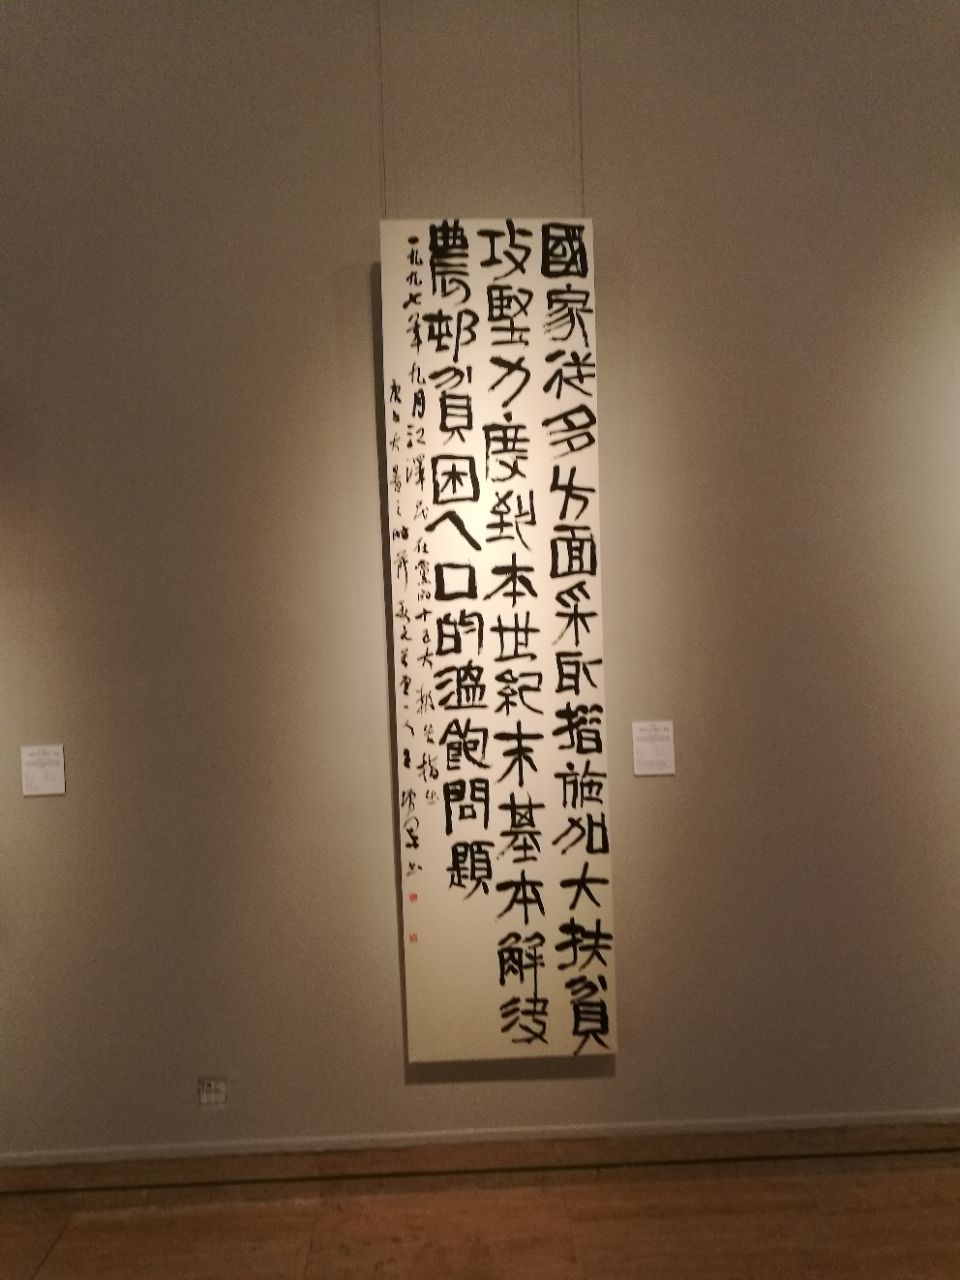 國家從多方面采取措施加大扶貧
攻堅力度到本世紀末基本解決
農邨貧困人口的溫飽問題
一九九七年九月江澤民在黨的十五大報告指出
庚子大暑之時